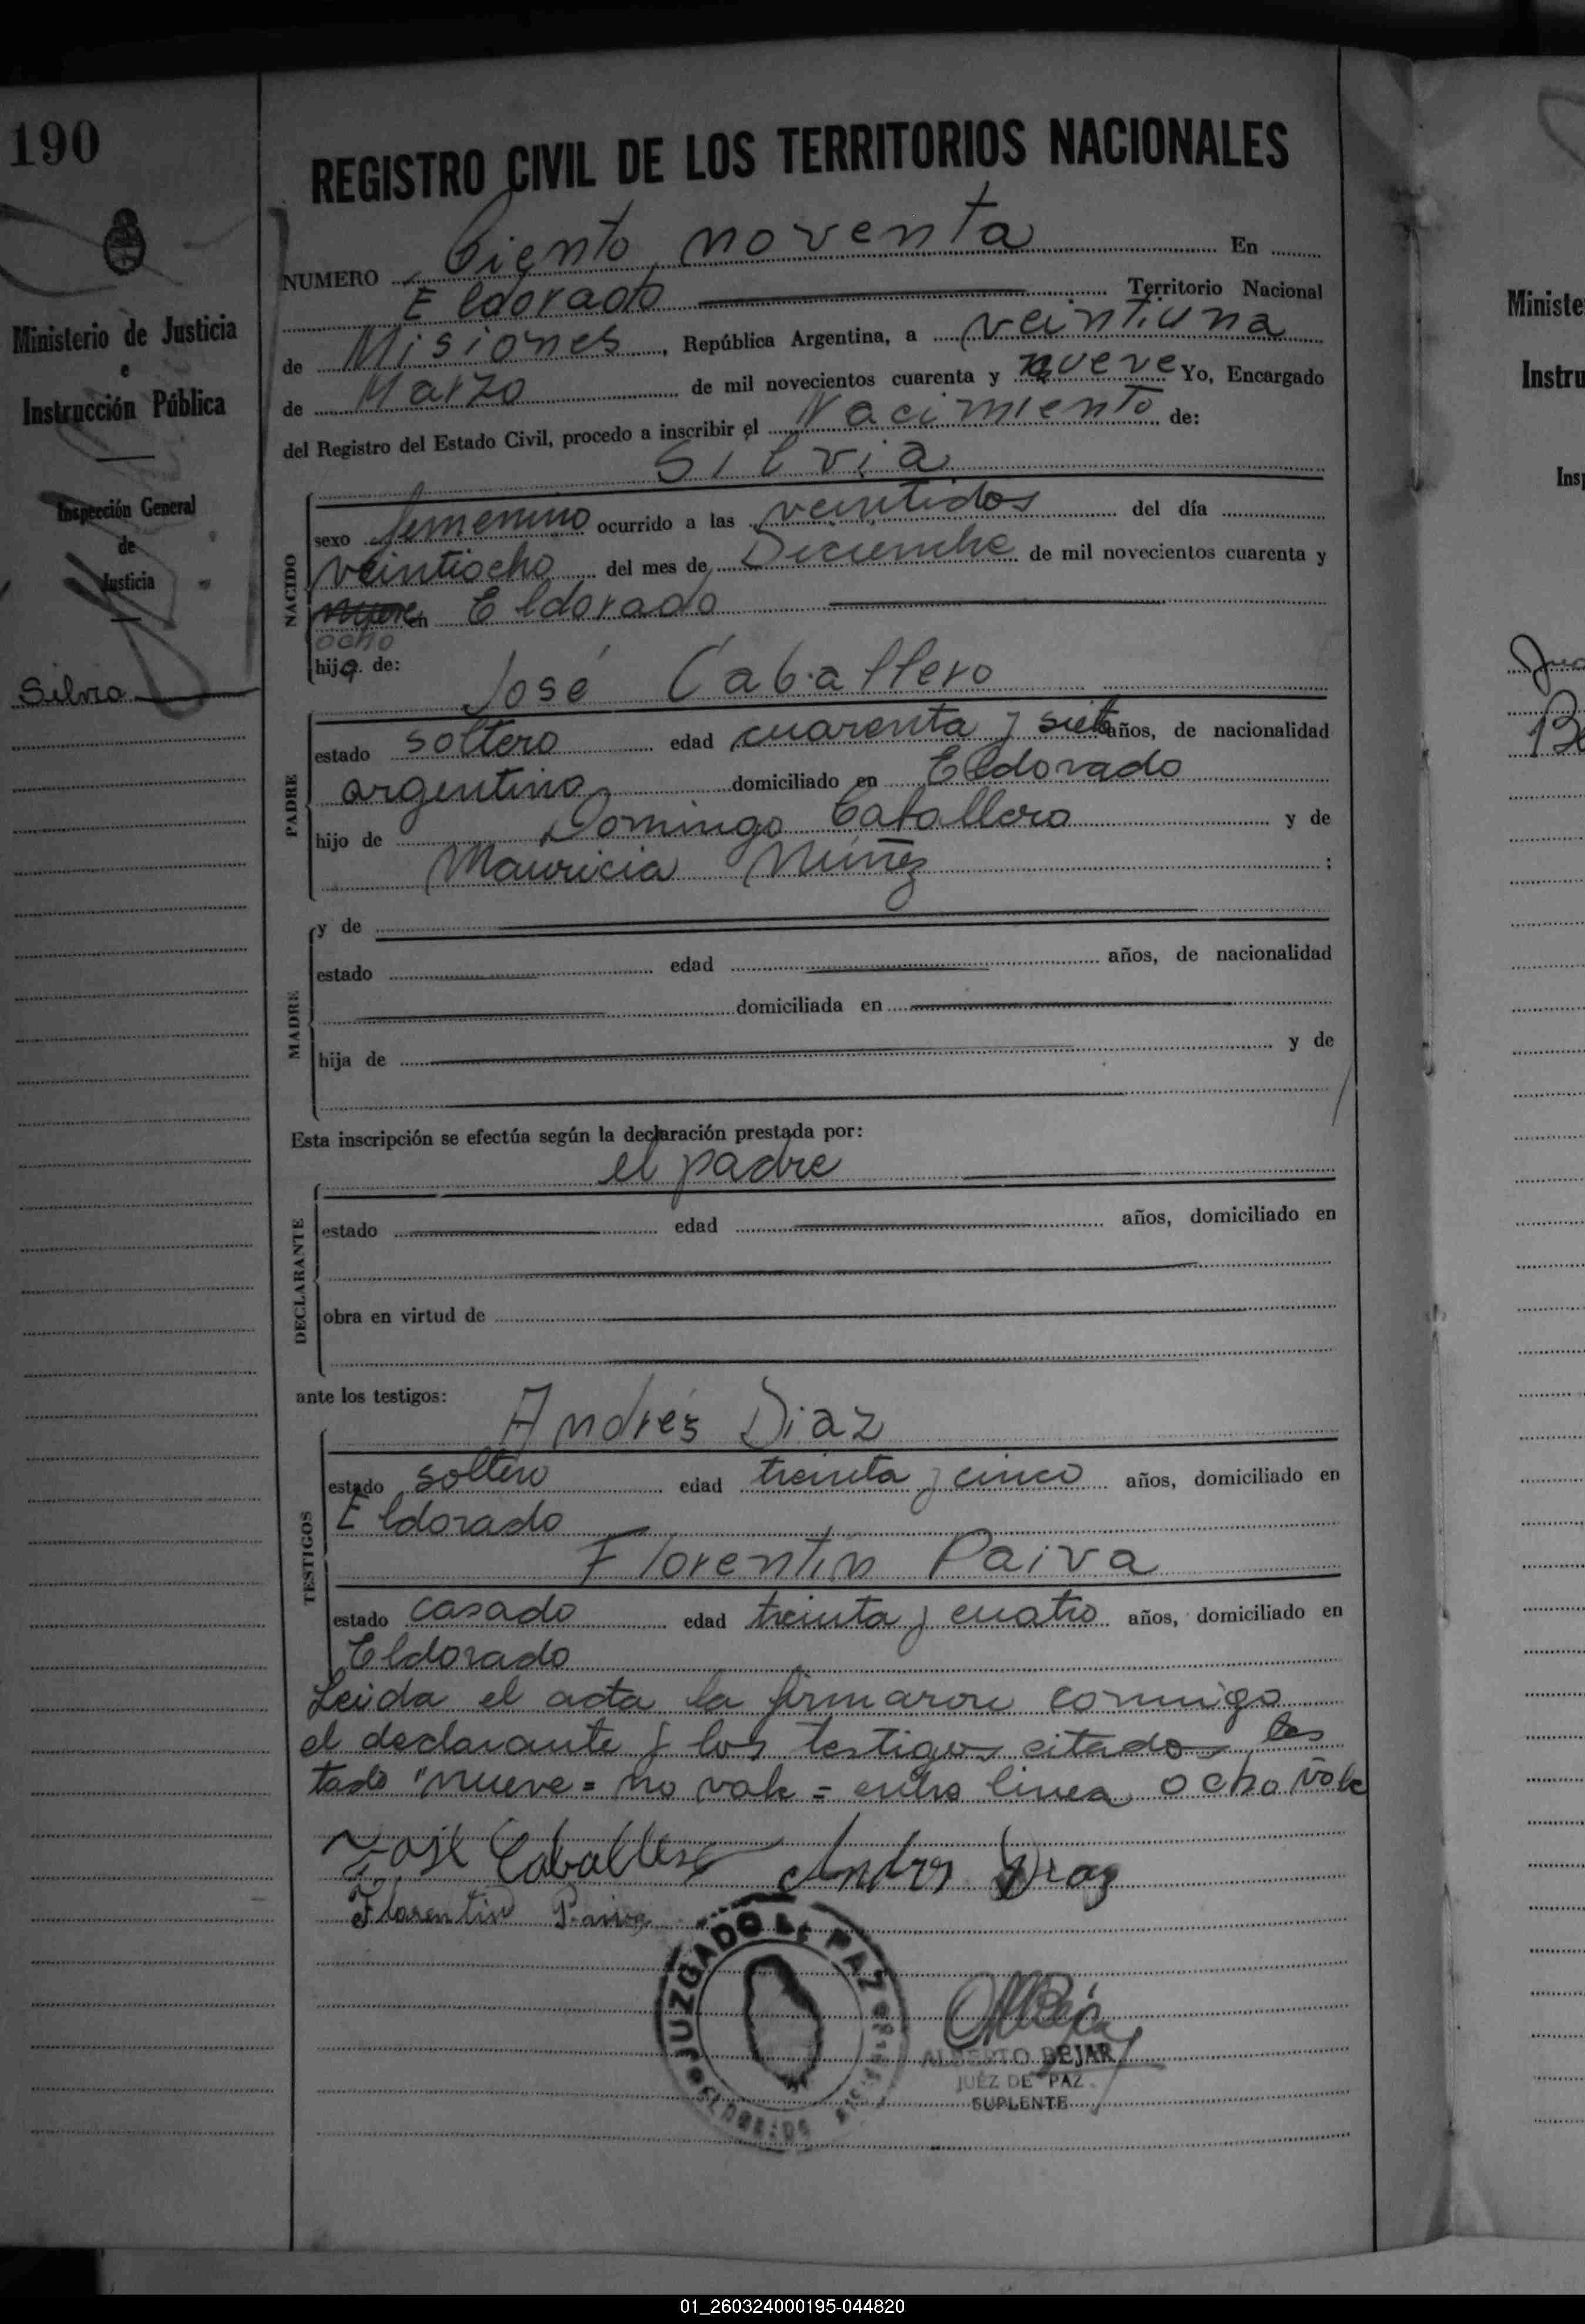 190
Ministerio de Justicia
e
Instrucción Pública
Inspección General
de
Justicia
Silvia
REGISTRO CIVIL DE LOS TERRITORIOS NACIONALES
NUMERO Ciento noventa En
Eldorado Territorio Nacional
de Misiones, República Argentina, a veintiuna
de Marzo de mil novecientos cuarenta y nueve Yo, Encargado
del Registro del Estado Civil, procedo a inscribir el Nacimiento de:
Silvia
NACIDO
sexo femenino ocurrido a las veintidos del día
veintiocho del mes de Diciembre de mil novecientos cuarenta y
nueve en Eldorado
ocho
hija de: José Caballero
PADRE
estado soltero edad cuarenta y siete años, de nacionalidad
argentino domiciliado en Eldorado
hijo de Domingo Caballero y de
Mauricia Núñez :
MADRE
y de
estado edad años, de nacionalidad
domiciliada en
hija de y de
Esta inscripción se efectúa según la declaración prestada por:
el padre
DECLARANTE
estado edad años, domiciliado en
obra en virtud de
ante los testigos:
Andrés Diaz
TESTIGOS
estado soltero edad treinta y cinco años, domiciliado en
Eldorado
Florentín Paiva
estado casado edad treinta y cuatro años, domiciliado en
Eldorado
Leida el acta la firmaron conmigo
el declarante y los testigos citados, tes
tado "nueve = no vale = entre linea ocho vale
José Caballero Andres Diaz
Florentin Paiva
JUZGADO DE PAZ
ELDORADO
ALBERTO BEJAR
JUEZ DE PAZ
SUPLENTE
Ministe
Instru
Ins
01_260324000195-044820